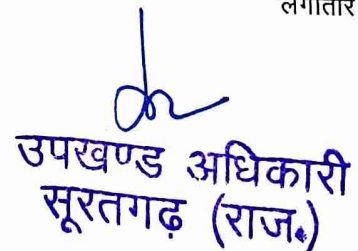 लगातार
उपखण्ड अधिकारी
सूरतगढ़ (राज.)